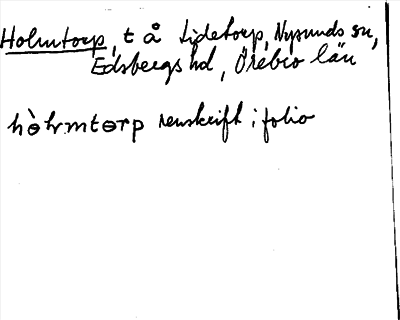 Holmtorp, t å Lidetorp, Nysunds sn,
Edsbergs hd, Örebro län
hòlrmtɵrp renskrift i folio